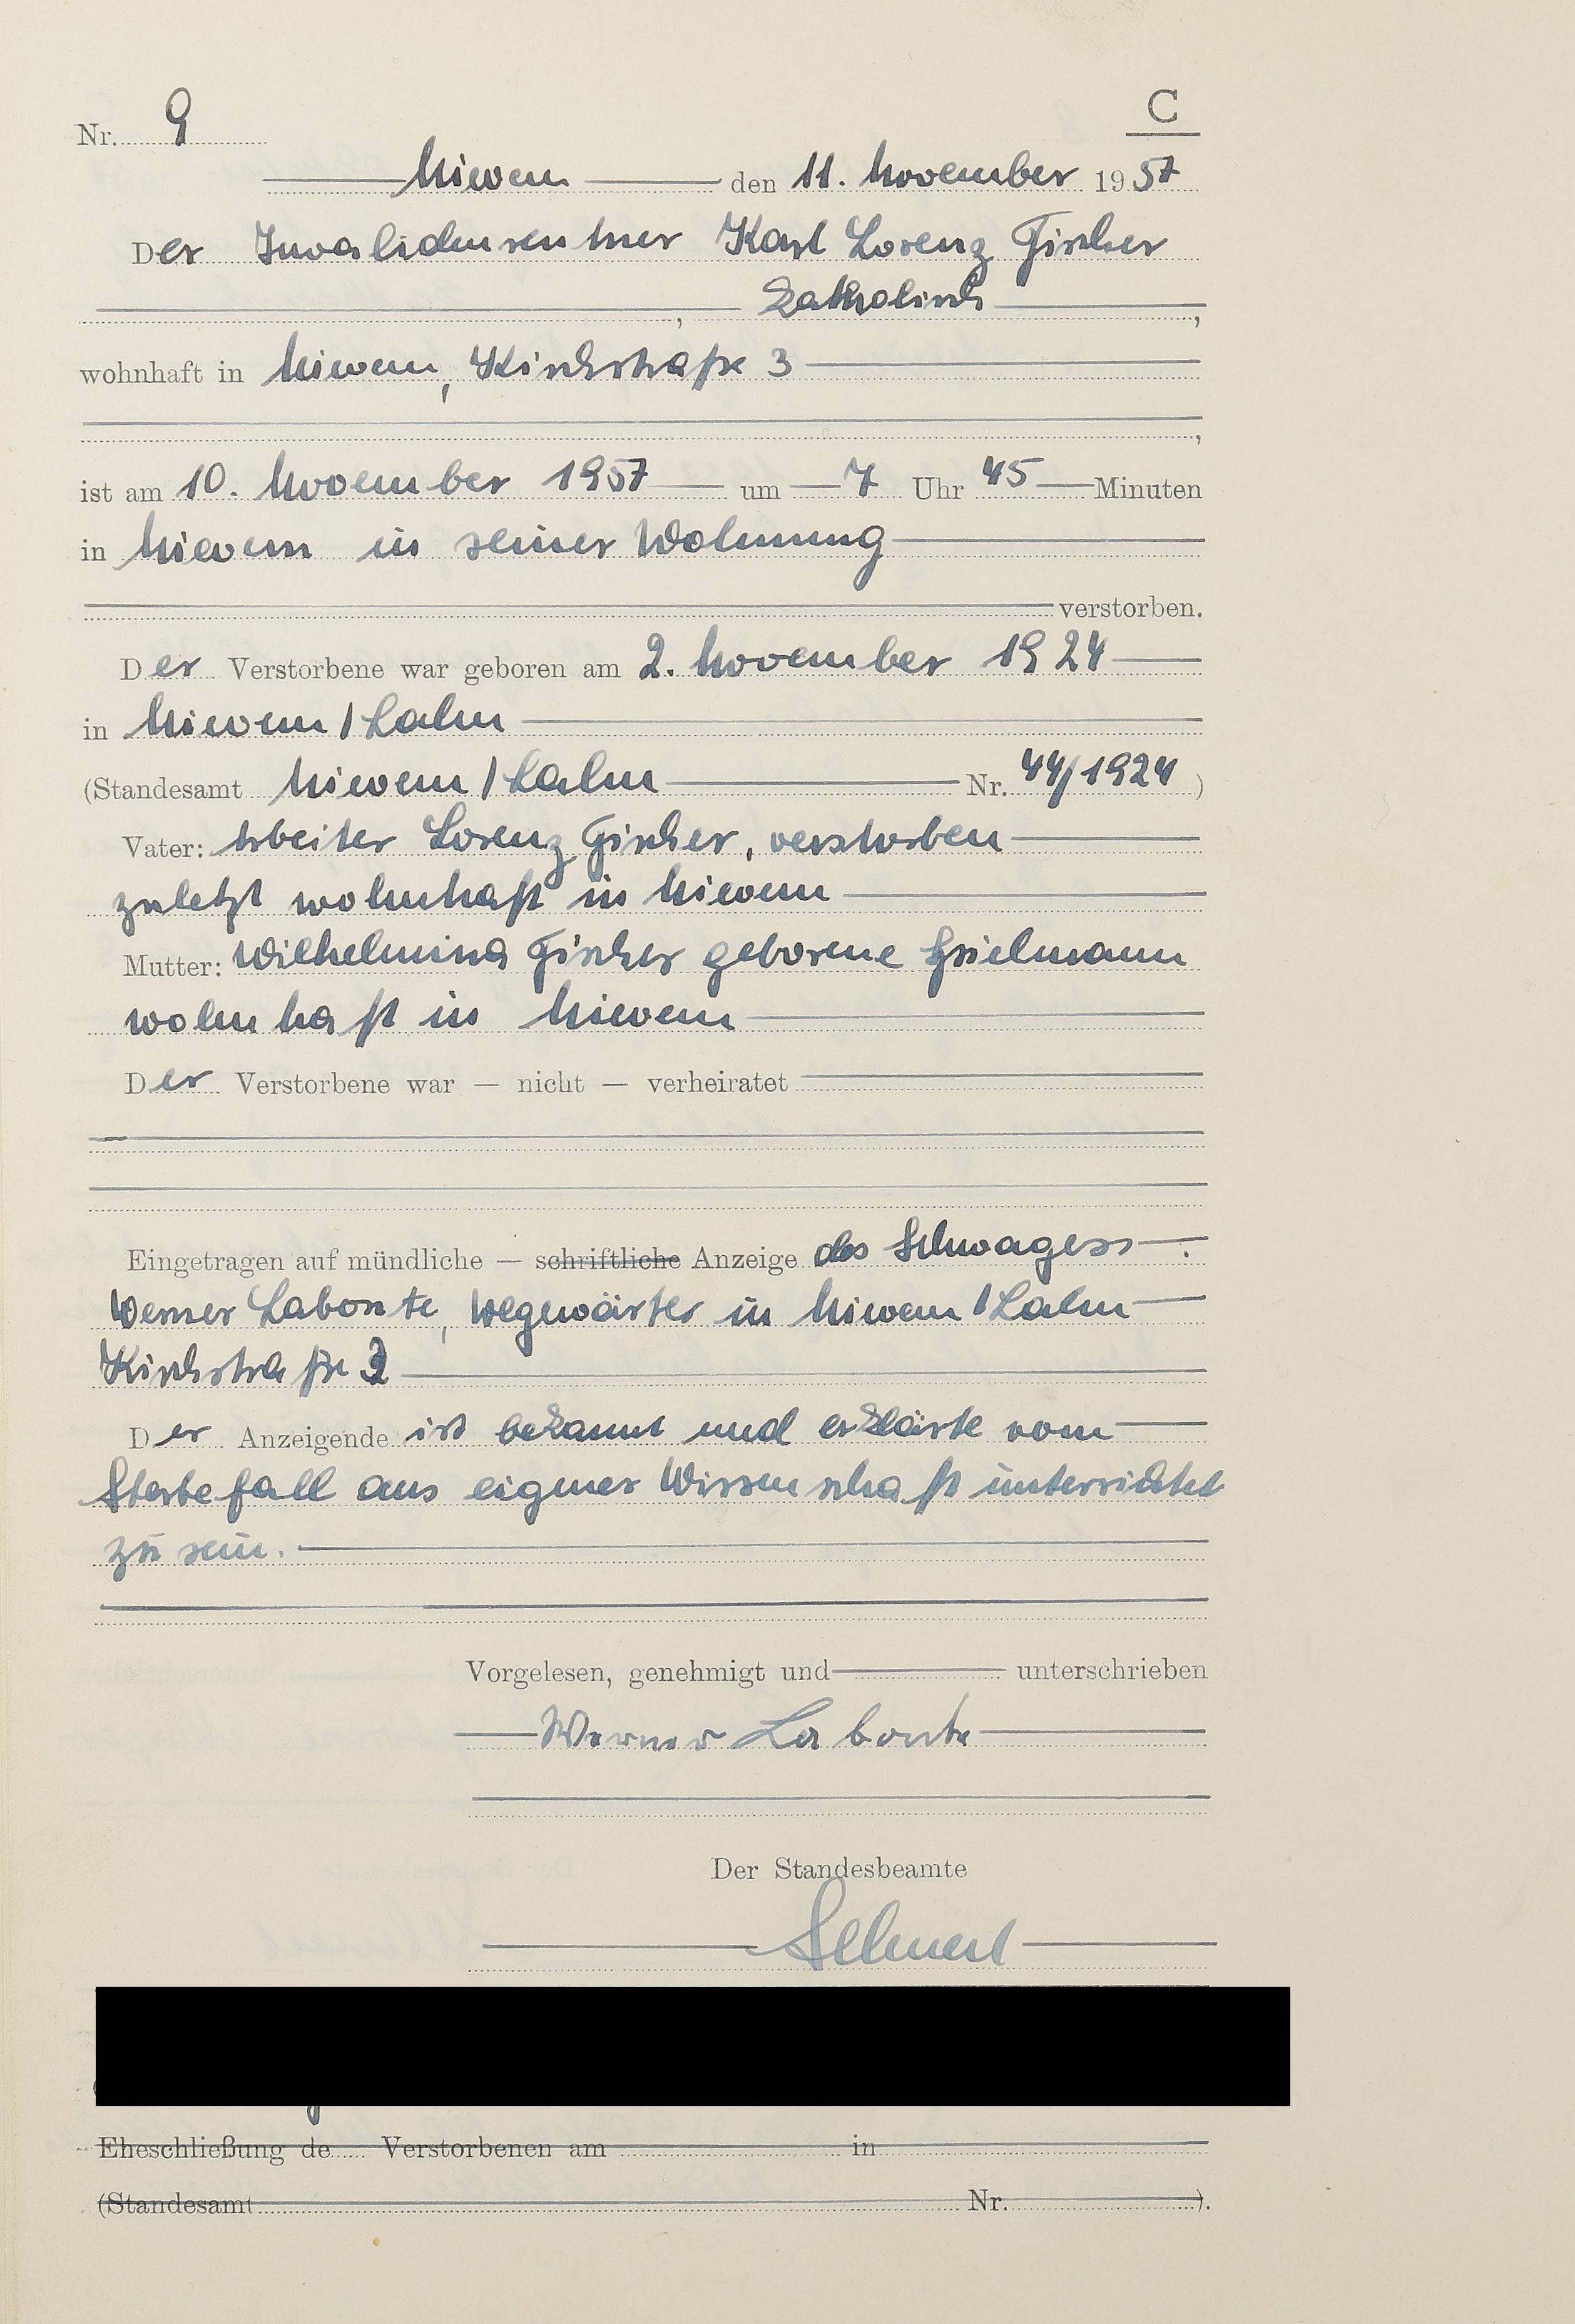 Nr. 9
C
Nievern den 11. November 1957
Der Invalidenrentner Karl Lorenz Fischer
, katholisch ,
wohnhaft in Nievern, Kirchstraße 3
,
ist am 10. November 1957 um 7 Uhr 45 Minuten
in Nievern in seiner Wohnung
verstorben.
Der Verstorbene war geboren am 2. November 1924
in Nievern/Lahn
(Standesamt Nievern/Lahn Nr. 44/1924 )
Vater: Arbeiter Lorenz Fischer, verstorben
zuletzt wohnhaft in Nievern
Mutter: Wilhelmina Fischer geborene Spielmann
wohnhaft in Nievern
Der Verstorbene war — nicht — verheiratet
Eingetragen auf mündliche — schriftliche Anzeige des Schwagers
Werner Labonte, Wegewärter in Nievern/Lahn
Kirchstraße 3
Der Anzeigende ist bekannt und erklärte vom
Sterbefall aus eigener Wissenschaft unterrichtet
zu sein.
Vorgelesen, genehmigt und unterschrieben
Werner Labonte
Der Standesbeamte
Eheschließung de Verstorbenen am in
(Standesamt Nr. ).